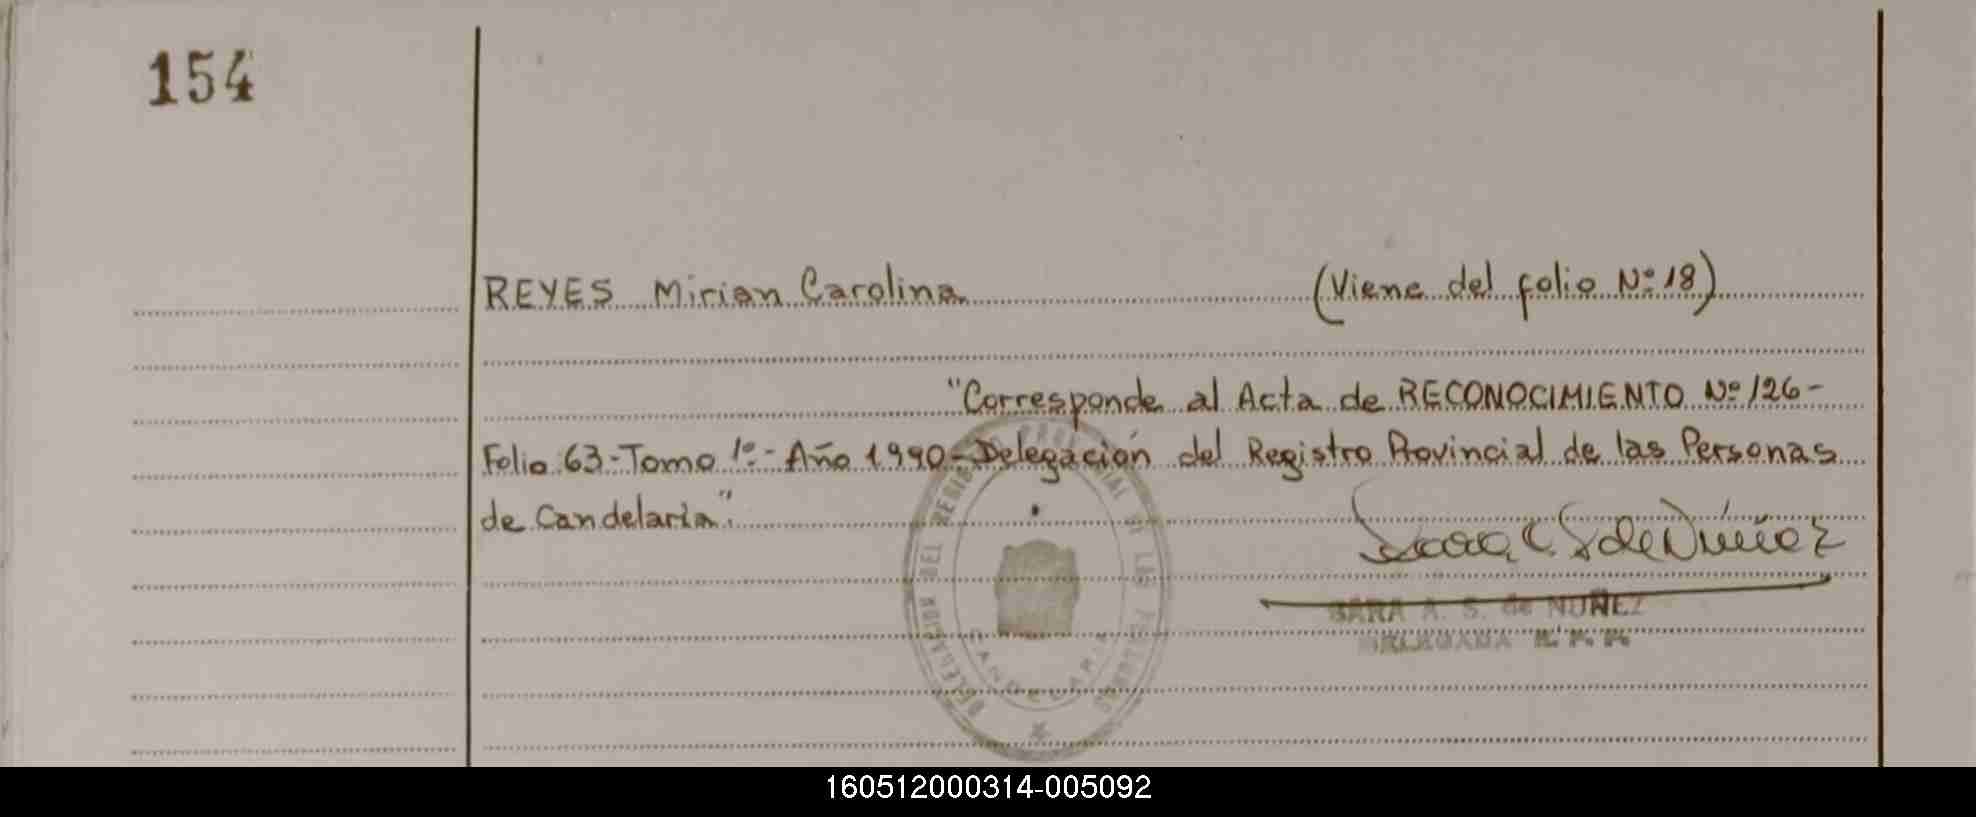 154
REYES Mirian Carolina (Viene del folio Nº 18)
"Corresponde al Acta de RECONOCIMIENTO Nº 126-
Folio 63-Tomo 1º- Año 1990-Delegación del Registro Provincial de las Personas
de Candelaria".
DELEGACION DEL REGISTRO PROVINCIAL DE LAS PERSONAS
CANDELARIA
SARA A. S. de NUÑEZ
DELEGADA R. P. P.
160512000314-005092